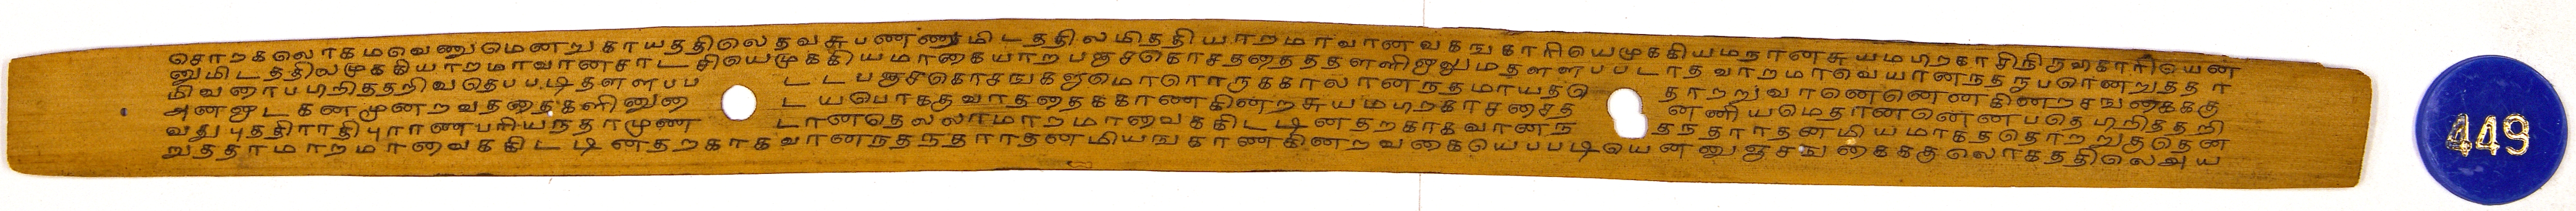 சொறகலொகமவெணுமெனறுகாயததிலெதவசுபணணுமிடததிலமிததியாறமாவானவகஙகாரியெமுககியமநானசுயமபறகாசிநிருவகாரியென
னுமிடததிலமுககியாறமாவானசாடசியெமுககியமாகையாறபஞசகொசததைததளளிஞலுமதளளபபடாதவாறமாவெயானநதநபரொனறுததா
மிவனாபபறிததறிவதெபபடிதளளபப டடபஞசகொசஙகளுமொரொருககாலானநதமாயதெ தாறறுவானெனெனகினறசஙகைககு
அனஞடகனமுனறவதததைகளினுன டயபொகதவாதததைககாணகினறசுயமபறகாசசைத னனியமெதானனெனபதெபறிததறி
வதுபுததிராதிபுராணபரியநதாமுண டானதெலலாமாறமாவைககிடடினதறகாகவானந தநதாரதனமியமாகததொறறுதென
றுததாமாறமாவைககிடடினதறகாகவானநதநதாரதனமியஙகாணகினறவகையெபபடியெனனுஞசஙகைககுலொகததிலெஅய
449